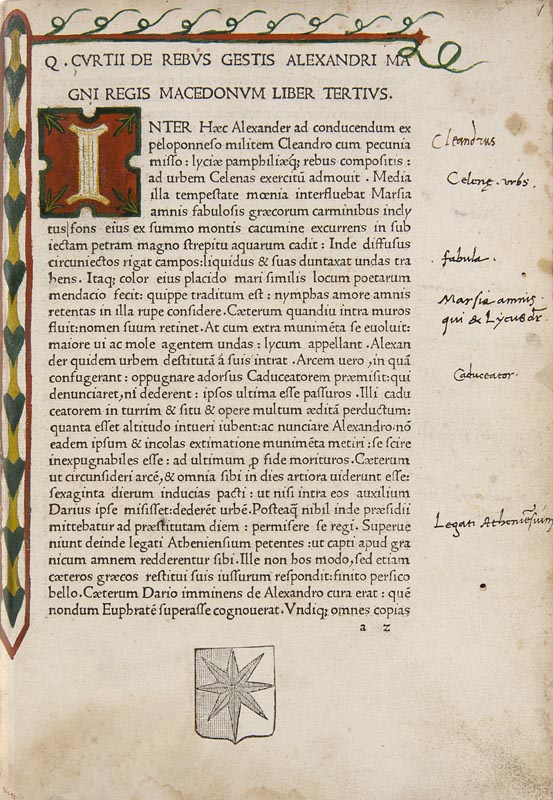 Q. CVRTII DE REBVS GESTIS ALEXANDRI MA
GNI REGIS MACEDONVM LIBER TERTIVS.
INTER Hæc Alexander ad conducendum ex
peloponneso militem Cleandro cum pecunia
misso: lyciæ pamphiliæq; rebus compositis:
ad urbem Celenas exercitũ admouit. Media
illa tempestate mœnia interfluebat Marsia
amnis fabulosis græcorum carminibus incly
tus|fons eius ex summo montis cacumine excurrens in sub
iectam petram magno strepitu aquarum cadit: Inde diffusus
circuniectos rigat campos:liquidus & suas duntaxat undas tra
hens. Itaq; color eius placido mari similis locum poetarum
mendacio fecit: quippe traditum est: nymphas amore amnis
retentas in illa rupe considere. Cæterum quandiu intra muros
fluit:nomen suum retinet. At cum extra munimẽta se euoluit:
maiore ui ac mole agentem undas: lycum appellant. Alexan
der quidem urbem destitutã á suis intrat. Arcem uero, in quã
confugerant: oppugnare adorsus Caduceatorem præmisit:qui
denunciaret, ni dederent: ipsos ultima esse passuros. Illi cadu
ceatorem in turrim & situ & opere multum æditã perductum:
quanta esset altitudo intueri iubent:ac nunciare Alexandro:nõ
eadem ipsum & incolas extimatione munimẽta metiri: se scire
inexpugnabiles esse: ad ultimum ꝓ fide morituros. Cæterum
ut circunsideri arcẽ, & omnia sibi in dies artiora uiderunt esse:
sexaginta dierum inducias pacti: ut nisi intra eos auxilium
Darius ipse misisset:dederẽt urbẽ. Posteaq̃ nihil inde præsidii
mittebatur ad præstitutam diem: permisere se regi. Superue
niunt deinde legati Atheniensium petentes: ut capti apud gra
nicum amnem redderentur sibi. Ille non hos modo, sed etiam
cæteros græcos restitui suis iussurum respondit: finito persico
bello. Cæterum Dario imminens de Alexandro cura erat: quẽ
nondum Euphratẽ superasse cognouerat. Vndiq; omnes copias
a z
Cleandrus
Celenę. urbs.
fabula.
Marsia amnis
qui & Lycus dr.
Caduceator.
Legati Atheniẽsium